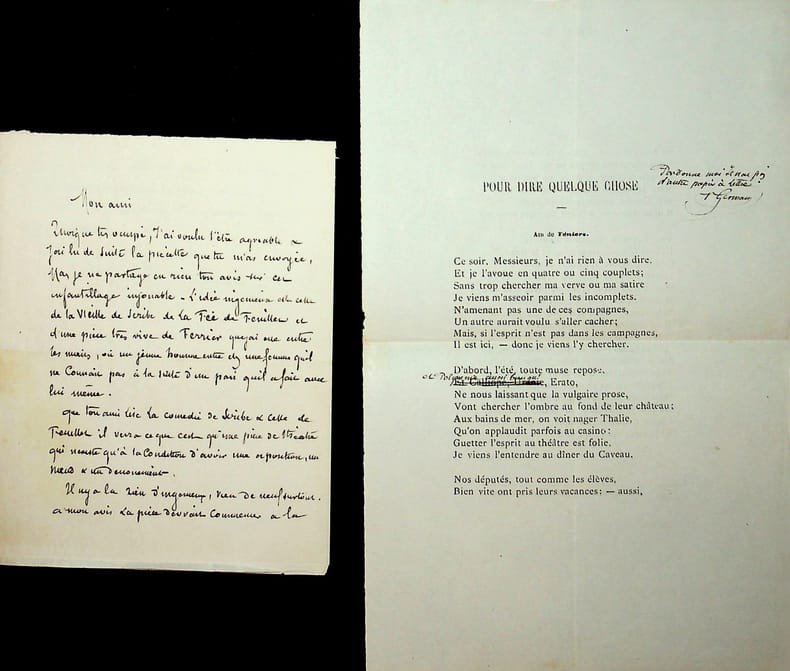 Mon ami
Quoique très occupé, J'ai voulu t'être agréable &
J'ai lu de suite la piécette que tu m'as envoyée,
Mais je ne partage en rien ton avis sur cet
enfantillage injouable – L'idée ingénieuse est celle
de la Vieille de Scribe de La Fée de Feuillet et
d'une pièce très vive de Ferrier que j'ai eue entre
les mains, où un jeune homme entre chez une femme qu'il
ne Connait pas à la suite d'un pari qu'il a fait avec
lui même.
que ton ami lise La comedie de Scribe & celle de
Feuillet il verra ce que c'est qu'une pièce de théâtre
qui n'existe qu'à la Condition d'avoir une exposition, un
nœud & un denouement.
Il n'y a là rien d'ingenieux, rien de neuf surtout.
a mon avis La pièce devrait Commencer a la
POUR DIRE QUELQUE CHOSE
Pardonne moi je n'ai pas
d'autre papier à lettre!
Air de Téniers.
Ce soir, Messieurs, je n'ai rien à vous dire.
Et je l'avoue en quatre ou cinq couplets;
Sans trop chercher ma verve ou ma satire
Je viens m'asseoir parmi les incomplets.
N'amenant pas une de ces compagnes,
Un autre aurait voulu s'aller cacher;
Mais, si l'esprit n'est pas dans les campagnes,
Il est ici, — donc je viens l'y chercher.
D'abord, l'été, toute muse repose,
Et Calliope, Uranie, Erato,
Ne nous laissant que la vulgaire prose,
Vont chercher l'ombre au fond de leur château;
Aux bains de mer, on voit nager Thalie,
Qu'on applaudit parfois au casino:
Guetter l'esprit au théâtre est folie,
Je viens l'entendre au dîner du Caveau.
Nos députés, tout comme les élèves,
Bien vite ont pris leurs vacances; — aussi,